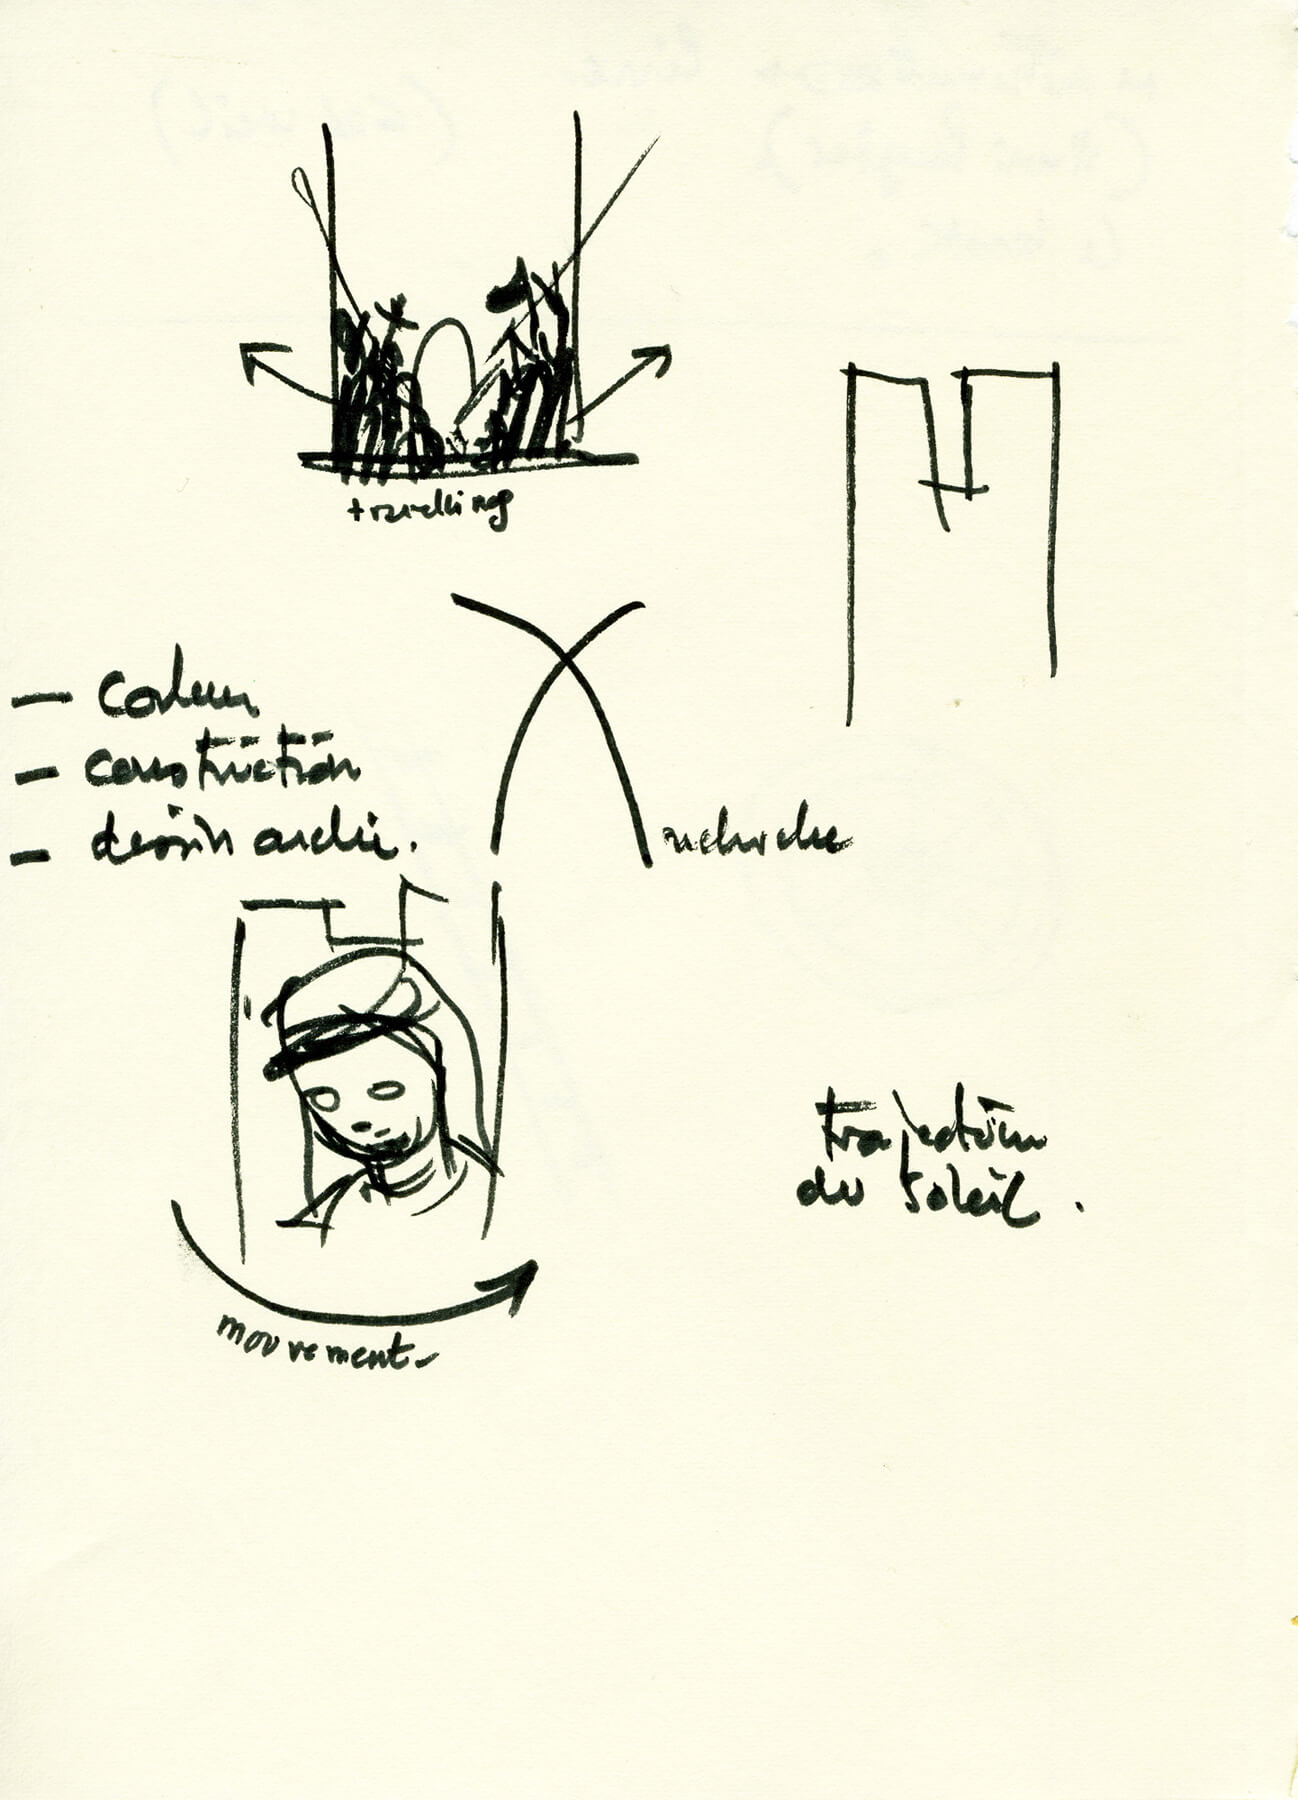 travelling
- couleur
- construction
- dessin archi.
recherche
trajectoire
du soleil.
mouvement-